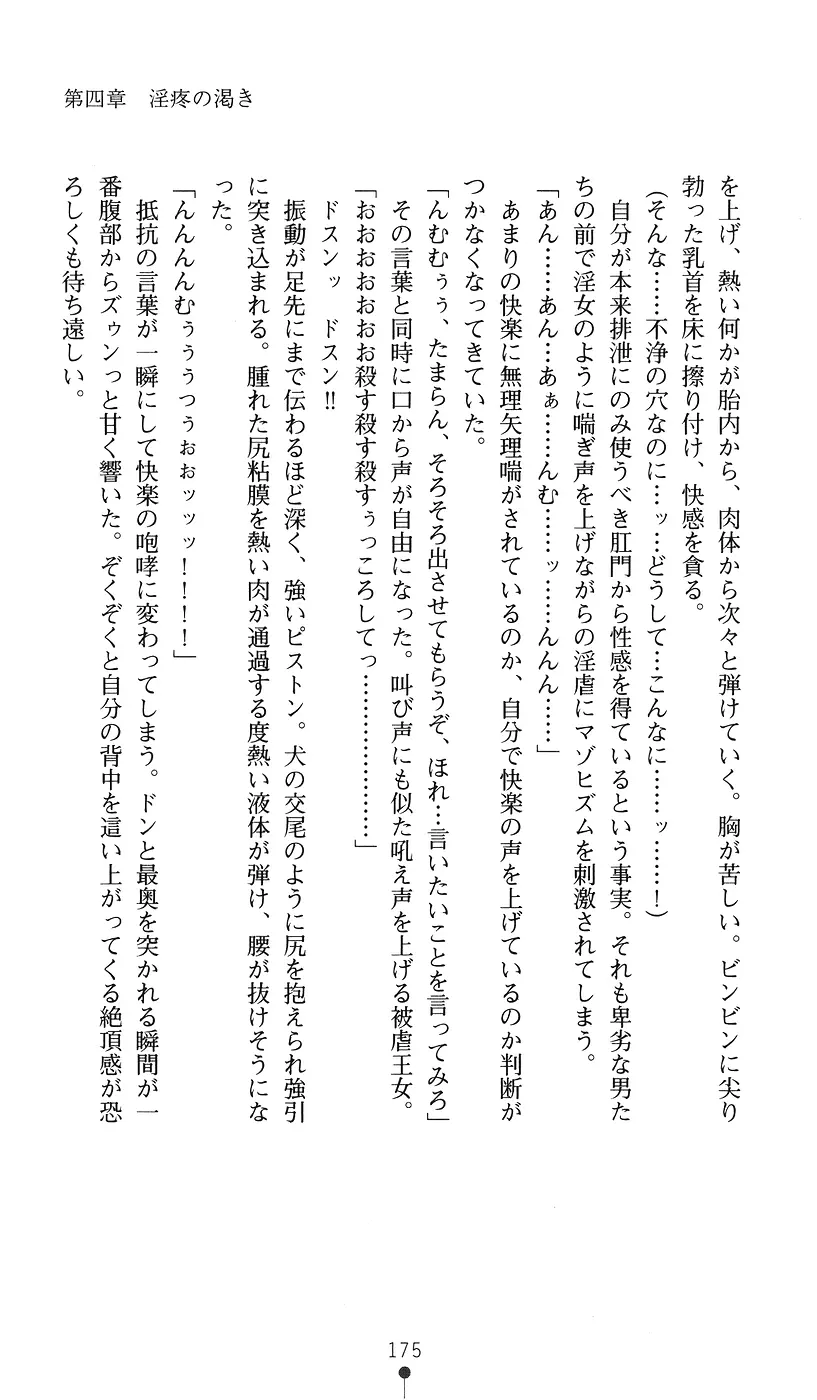 第四章　淫疼の渇き
を上げ、熱い何かが胎内から、肉体から次々と弾けていく。胸が苦しい。ビンビンに尖り
勃った乳首を床に擦り付け、快感を貪る。
（そんな……不浄の穴なのに…ッ…どうして…こんなに……ッ……！）
　自分が本来排泄にのみ使うべき肛門から性感を得ているという事実。それも卑劣な男た
ちの前で淫女のように喘ぎ声を上げながらの淫虐にマゾヒズムを刺激されてしまう。
「あん……あん…あぁ……んむ……ッ……んんん……」
　あまりの快楽に無理矢理喘がされているのか、自分で快楽の声を上げているのか判断が
つかなくなってきていた。
「んむむぅぅ、たまらん、そろそろ出させてもらうぞ、ほれ…言いたいことを言ってみろ」
　その言葉と同時に口から声が自由になった。叫び声にも似た吼え声を上げる被虐王女。
「おおおおおおお殺す殺すぅっころしてっ…………………」
　ドスンッ　ドスン!!
　振動が足先にまで伝わるほど深く、強いピストン。犬の交尾のように尻を抱えられ強引
に突き込まれる。腫れた尻粘膜を熱い肉が通過する度熱い液体が弾け、腰が抜けそうにな
った。
「んんんんむぅぅぅつぅぉぉッッッ！！！！」
　抵抗の言葉が一瞬にして快楽の咆哮に変わってしまう。ドンと最奥を突かれる瞬間が一
番腹部からズゥンっと甘く響いた。ぞくぞくと自分の背中を這い上がってくる絶頂感が恐
ろしくも待ち遠しい。
175